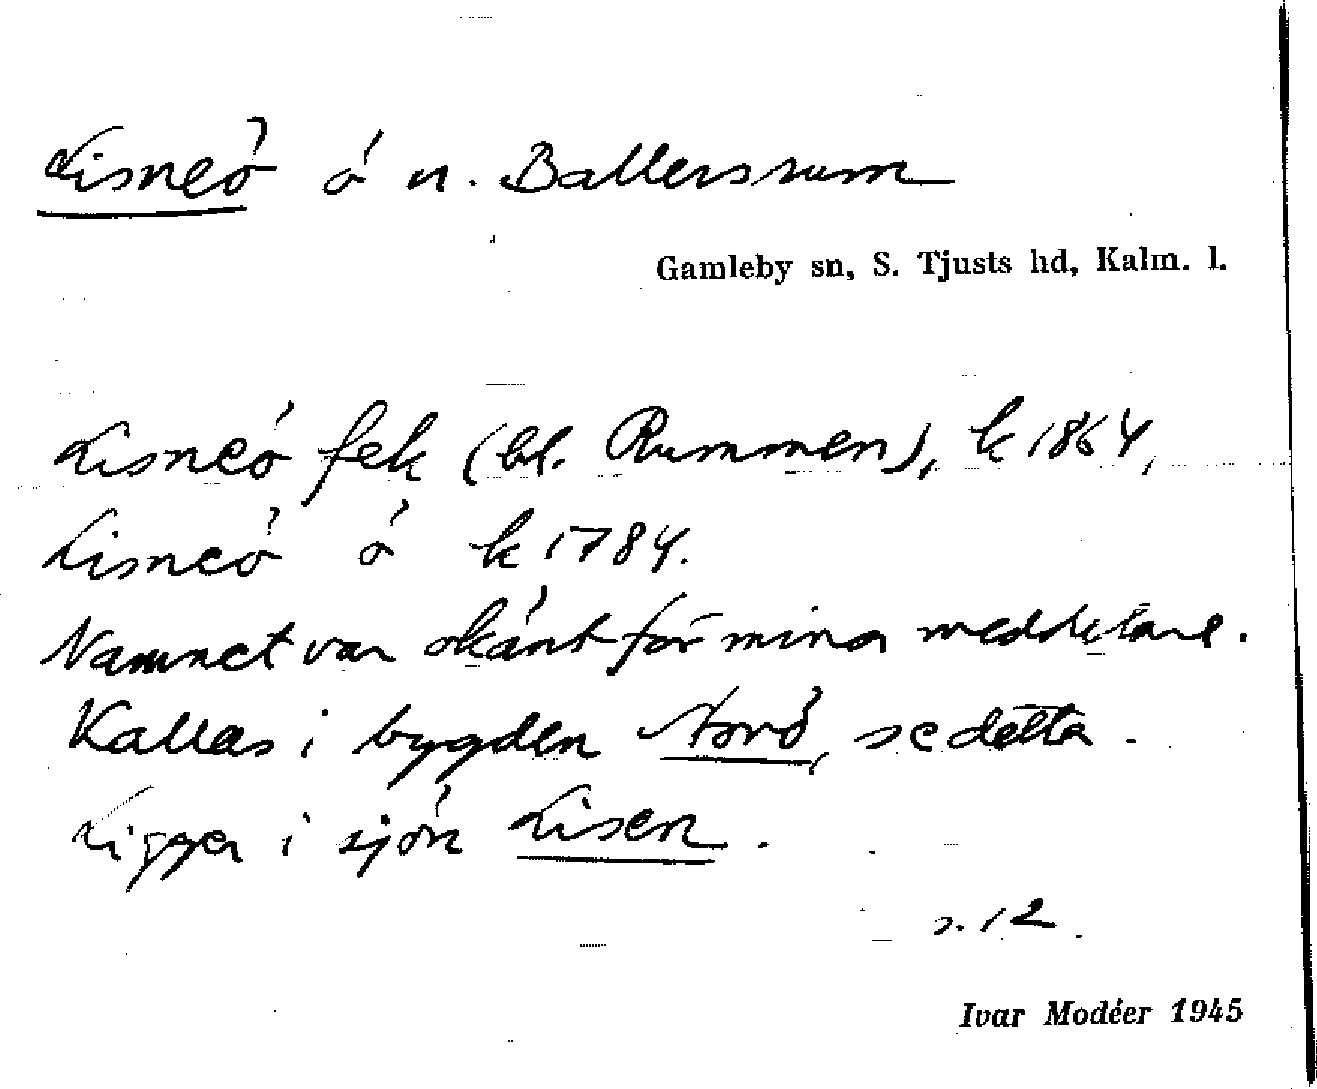 Lisneö ö n. Ballersrum
Gamleby sn, S. Tjusts hd, Kalm. l.
Lisneö fek (bl. Rummen), k 1864,
Lisneö ö k 1784.
Namnet var okänt för mina meddelare.
Kallas i bygden Norö, se detta.
Ligger i sjön Lisen.
s. 12.
Ivar Modéer 1945